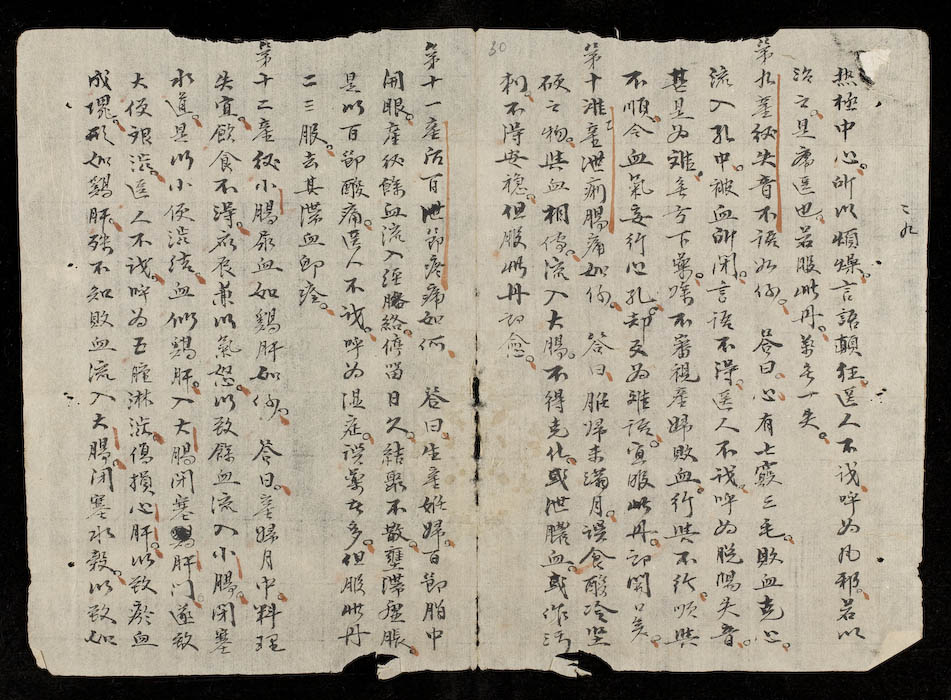 熱極中心所以煩燥言語顛狂医人不识呼為风邪若以
治之是庸医也若服此丹萬无一失
二九
第九産後失音不語如何 荅曰心有七竅三毛敗血克心
流入孔中被血所闭言語不得医人不识呼為脱陽失音
甚是为难无方下藥噪不審視産婦敗血行与不行
不順令血氣妄行心孔却反为难語宜服此丹即開口矣
第十准産泄痢腸痛如何 荅曰胎帰未满月误食酸冷坚
硬之物与血相侍流入大腸不得克化或泄膿血或作污
刺不得安穏但服此丹即愈
30
第十一産后百泄節疼痛如何 荅曰生産姙婦百節胎中
開眼産後餘血流入經络停留日久結聚不散壅滞虚脹
是以百節酸痛医人不识呼为湿症误藥者多但服此丹
二三服去其滞血即痊
第十二産後小腸尿血如鷄肝如何 荅曰産婦月中料理
失宜飲食不得兼以氣怒以致餘血流入小腸闭塞
水道是以小便澁结血似鷄肝入大腸闭塞肝门遂致
大便艰澁医人不识呼为五膣淋澁傷損心肝以致瘀血
成塊形如鷄肝殊不知敗血流入大腸闭塞水榖以致如